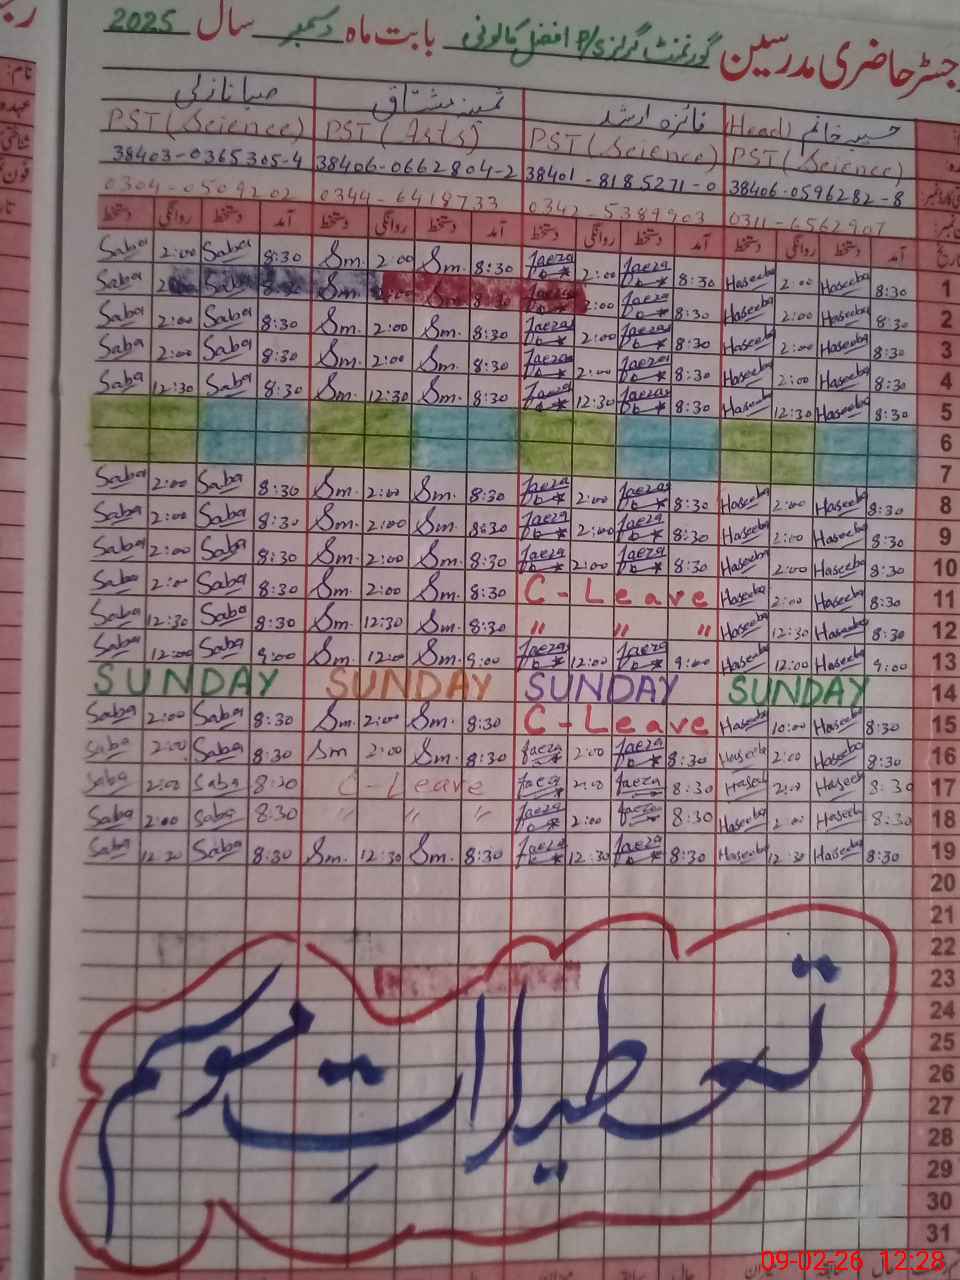 رجسٹر حاضری مدرسین گورنمنٹ گرلز P/S افضل کالونی بابت ماہ دسمبر سال 2025
حسیبہ خانم (Head) فائزہ ارشد ثمینہ مشتاق صبا نازلی
PST (Science) PST (Arts) PST (Science) PST (Science)
38403-0365305-4 38406-0662804-2 38401-8185271-0 38406-0596282-8
0304-0509202 0344-6419733 0342-5389903 0311-6562907
آمد دستخط روانگی دستخط آمد دستخط روانگی دستخط آمد دستخط روانگی دستخط آمد دستخط روانگی دستخط
Saba 2:00 Saba 8:30 Sm. 2:00 Sm. 8:30 faeza 2:00 faeza 8:30 Haseeba 2:00 Haseeba 8:30 1
Saba Saba Sm. Sm. 8:30 faeza 2:00 faeza 8:30 Haseeba 2:00 Haseeba 8:30 2
Saba 2:00 Saba 8:30 Sm. 2:00 Sm. 8:30 faeza 2:00 faeza 8:30 Haseeba 2:00 Haseeba 8:30 3
Saba 2:00 Saba 8:30 Sm. 2:00 Sm. 8:30 faeza 2:00 faeza 8:30 Haseeba 2:00 Haseeba 8:30 4
Saba 12:30 Saba 8:30 Sm. 12:30 Sm. 8:30 faeza 12:30 faeza 8:30 Haseeba 12:30 Haseeba 8:30 5
6
7
Saba 2:00 Saba 8:30 Sm. 2:00 Sm. 8:30 faeza 2:00 faeza 8:30 Haseeba 2:00 Haseeba 8:30 8
Saba 2:00 Saba 8:30 Sm. 2:00 Sm. 8:30 faeza 2:00 faeza 8:30 Haseeba 2:00 Haseeba 8:30 9
Saba 2:00 Saba 8:30 Sm. 2:00 Sm. 8:30 faeza 2:00 faeza 8:30 Haseeba 2:00 Haseeba 8:30 10
Saba 2:00 Saba 8:30 Sm. 2:00 Sm. 8:30 C-Leave Haseeba 2:00 Haseeba 8:30 11
Saba 12:30 Saba 8:30 Sm. 12:30 Sm. 8:30 " " " Haseeba 12:30 Haseeba 8:30 12
Saba 12:00 Saba 9:00 Sm. 12:00 Sm. 9:00 faeza 12:00 faeza 9:00 Haseeba 12:00 Haseeba 9:00 13
SUNDAY SUNDAY SUNDAY SUNDAY 14
Saba 2:00 Saba 8:30 Sm. 2:00 Sm. 8:30 C-Leave Haseeba 10:00 Haseeba 8:30 15
Saba 2:00 Saba 8:30 Sm 2:00 Sm. 8:30 faeza 2:00 faeza 8:30 Haseeba 2:00 Haseeba 8:30 16
Saba 2:00 Saba 8:30 C-Leave faeza 2:00 faeza 8:30 Haseeba 2:00 Haseeba 8:30 17
Saba 2:00 Saba 8:30 " " " faeza 2:00 faeza 8:30 Haseeba 2:00 Haseeba 8:30 18
Saba 12:30 Saba 8:30 Sm. 12:30 Sm. 8:30 faeza 12:30 faeza 8:30 Haseeba 12:30 Haseeba 8:30 19
20
21
22
23
24
25
تعطیلاتِ موسم
26
27
28
29
30
31
09-02-26 12:28